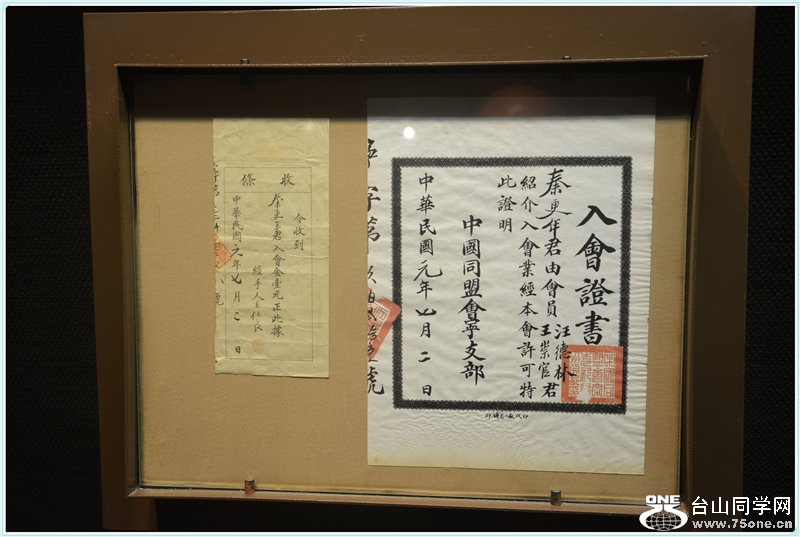 入會證書
秦更年君由會員
汪德林
王崇官君
紹介入會業經本會許可特
此證明
中國同盟會寧支部
中華民國元年七月二日
收條
今收到
秦更年君入會金壹元正此據
經手人王仕
中華民國元年七月二日
號
台山同学网
www.75one.cn
ONE